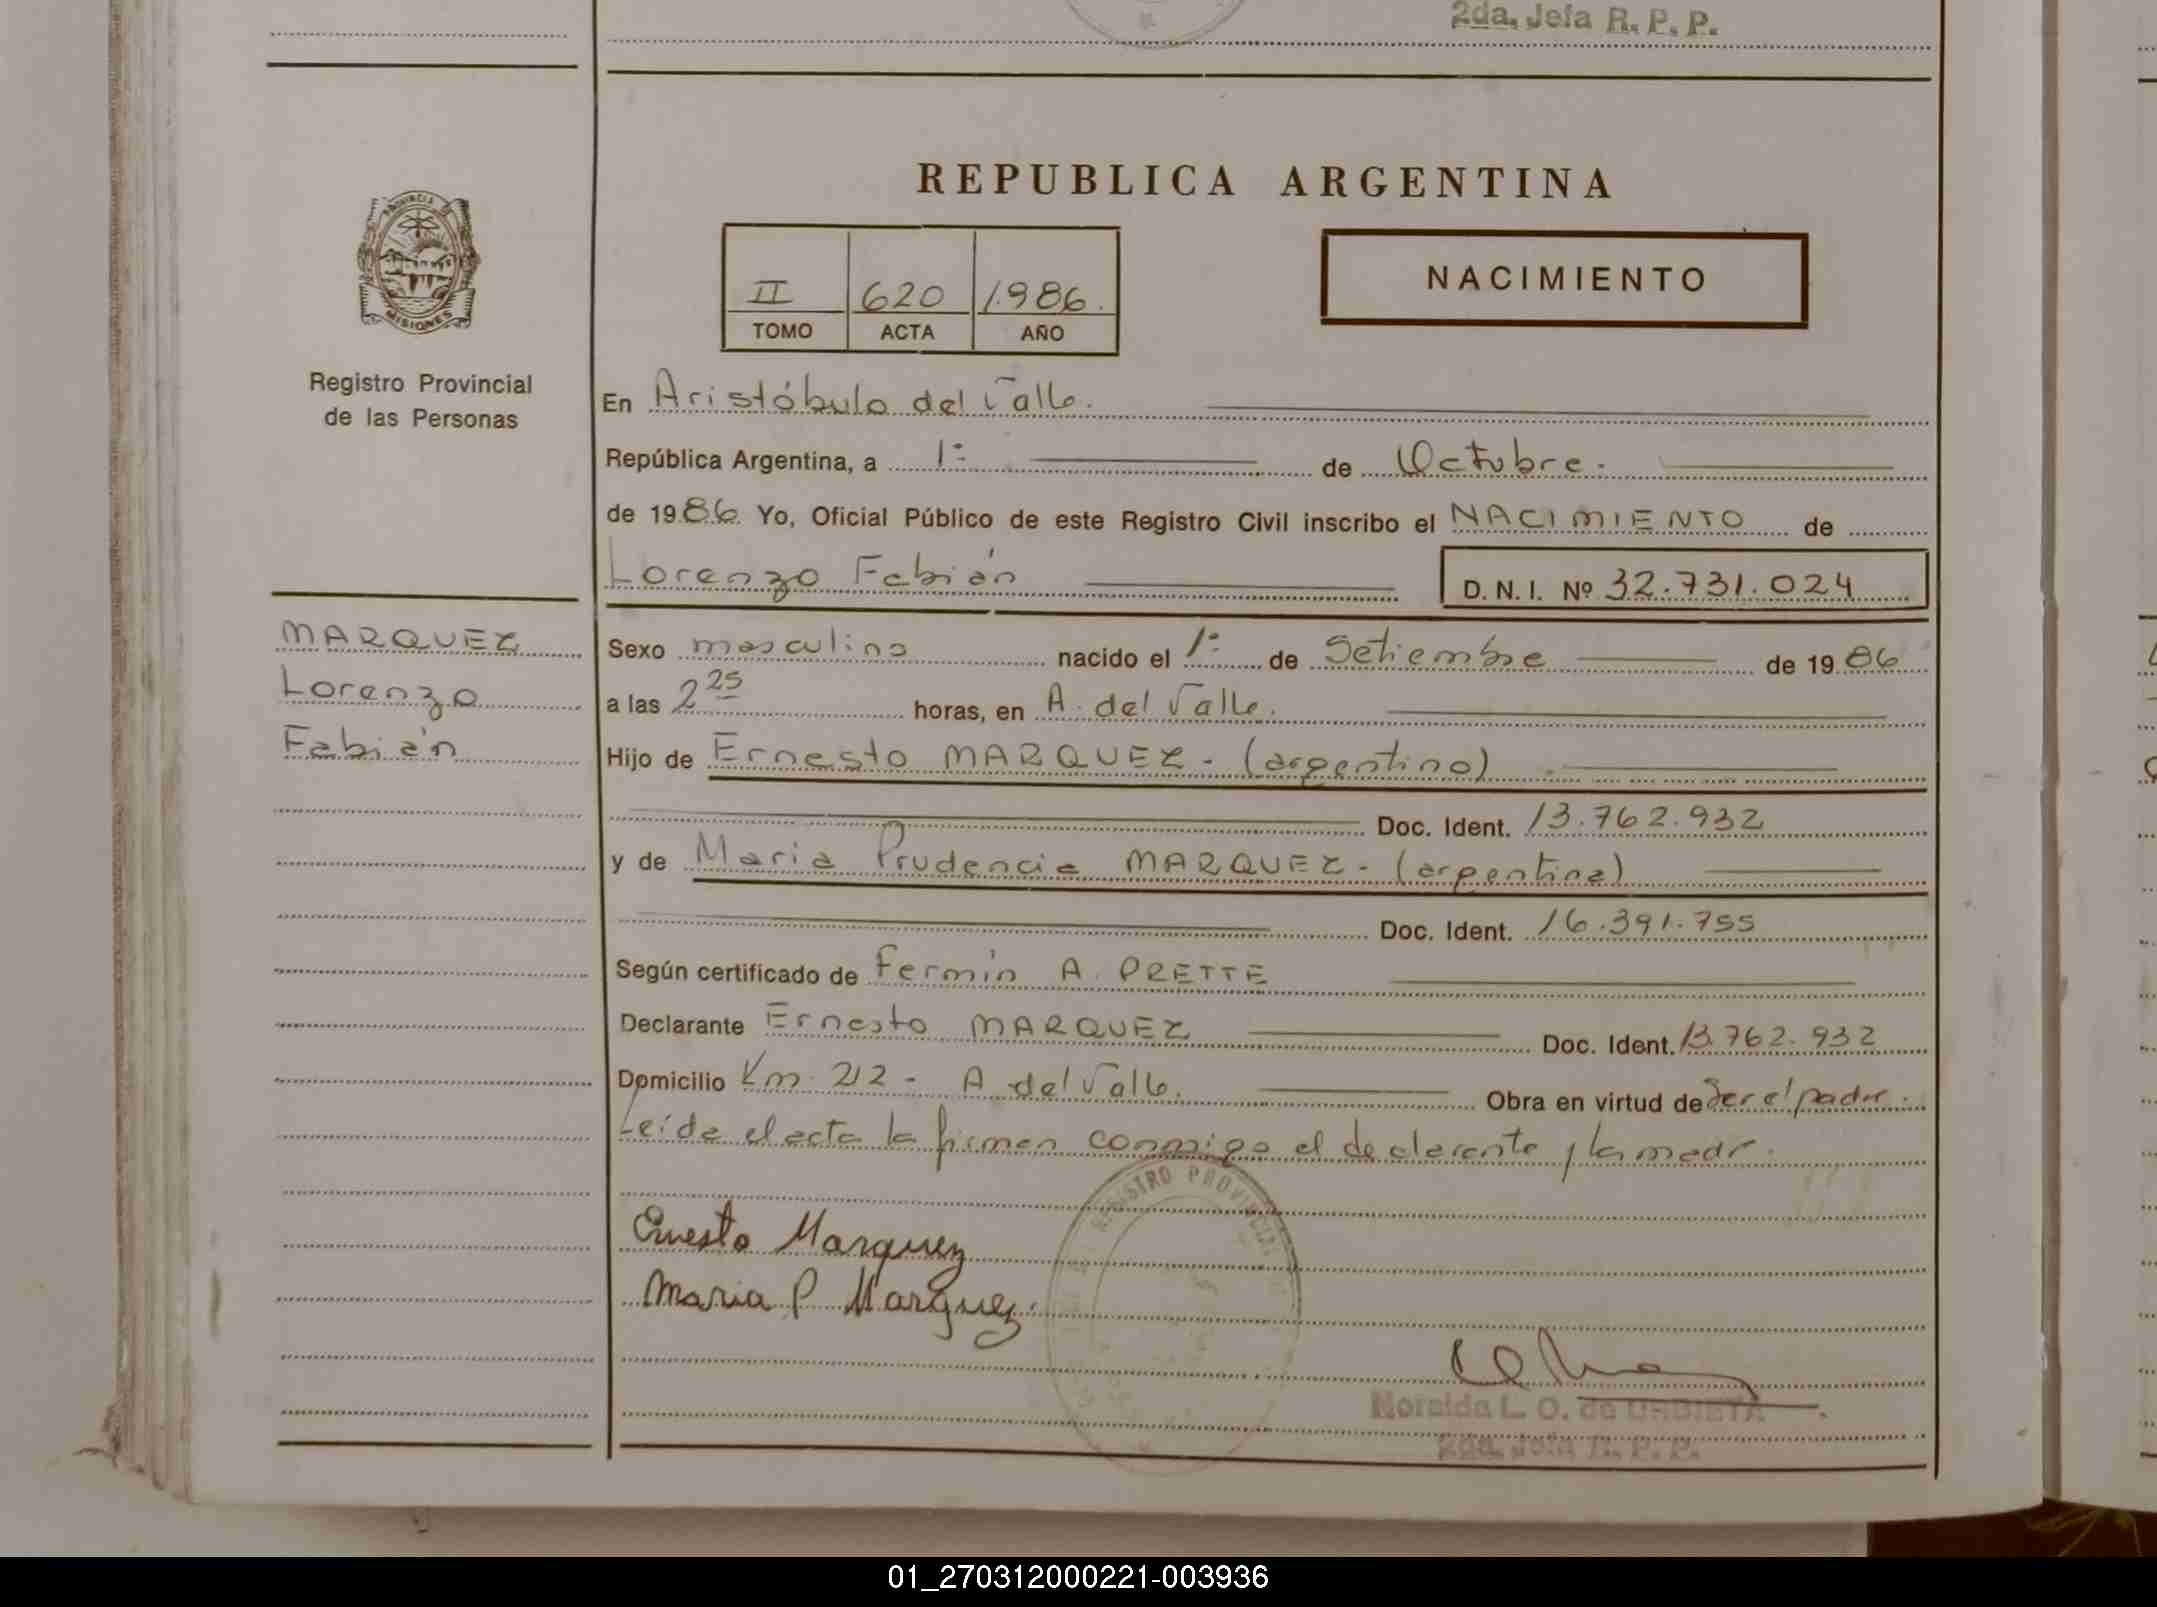 2da. Jefa R. P. P.
REPUBLICA ARGENTINA
PROVINCIA
MISIONES
Registro Provincial
de las Personas
II 620 1.986.
TOMO ACTA AÑO
NACIMIENTO
En Aristóbulo del Valle.
República Argentina, a 1º de Octubre.
de 1986 Yo, Oficial Público de este Registro Civil inscribo el NACIMIENTO de
Lorenzo Fabián D. N. I. Nº 32.731.024
MARQUEZ
Lorenzo
Fabián
Sexo masculino nacido el 1º de Setiembre de 1986
a las 2 25 horas, en A. del Valle.
Hijo de Ernesto MARQUEZ - (argentino)
Doc. Ident. 13.762.932
y de Maria Prudencia MARQUEZ - (argentina)
Doc. Ident. 16.391.755
Según certificado de Fermín A. PRETTE
Declarante Ernesto MARQUEZ Doc. Ident. 13.762.932
Domicilio Km. 212 - A del Valle. Obra en virtud de Ser el padre.
Leída el acta la firman conmigo el declarante y la madre.
REGISTRO PROVINCIAL
Ernesto Marquez
Maria P Marquez.
Noralda L. O. de URBIETA
2da. Jefa R. P. P.
01_270312000221-003936